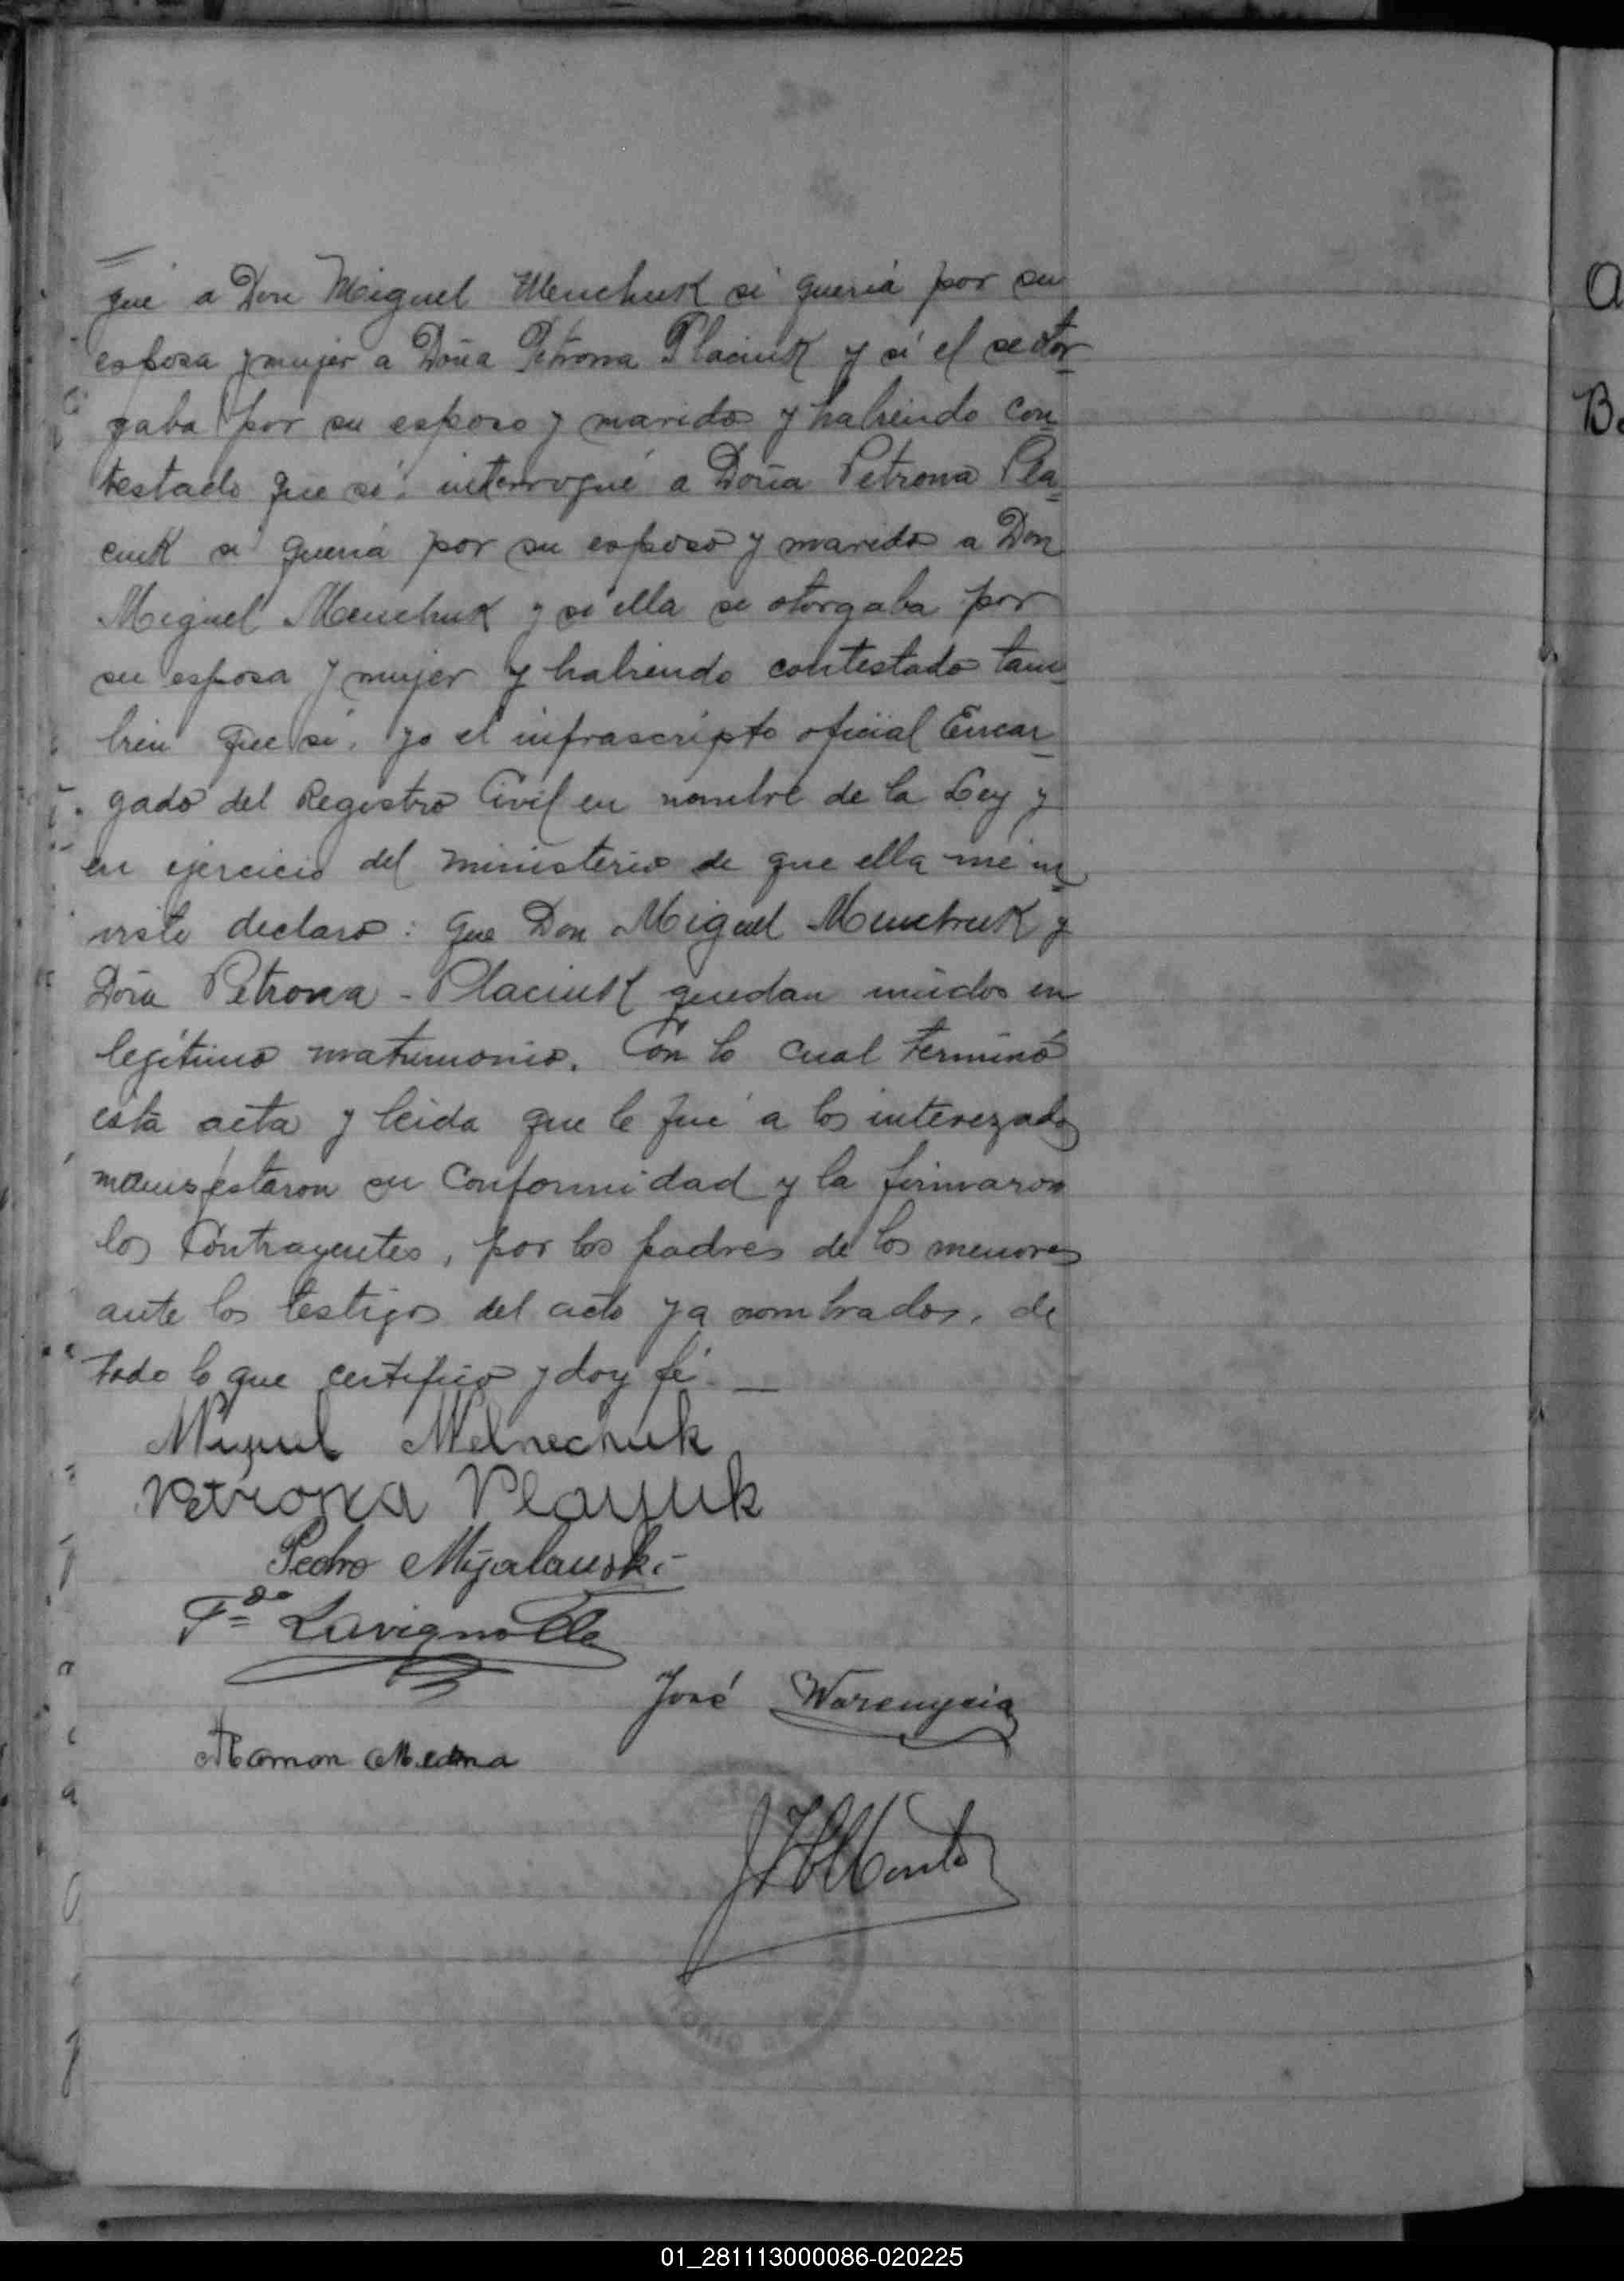 gué a Don Miguel Menchuk si queriá por su
esposa y mujer a Doña Petrona Placiuk y si el se otor
gaba por su esposo y marido y habiendo con
testado que sí: interrogué a Doña Petrona Pla
ciuk si queriá por su esposo y marido a Don
Miguel Menchuk y si ella se otorgaba por
su esposa y mujer y habiendo contestado tam
bien que si, yo el infrascripto oficial Encar
gado del Registro Civil en nombre de la Ley y
en ejercicio del ministerio de que ella me in
viste declaro: que Don Miguel Menchuk y
Doña Petrona - Placiuk quedan unidos en
legítimo matrimonio. Con lo cual terminó
esta acta y leida que le fué a los interezados
manifestaron su conformidad y la firmaron
los contrayentes, por los padres de los menores
ante los testigos del acto ya nombrados, de
todo lo que certifico y doy fé. —
Miguel Melnechuk
Petrona Playuk
Pedro Mijalauski
Fdo Lavignolle
José Warenycia
Ramon Medina
01_281113000086-020225
A
B